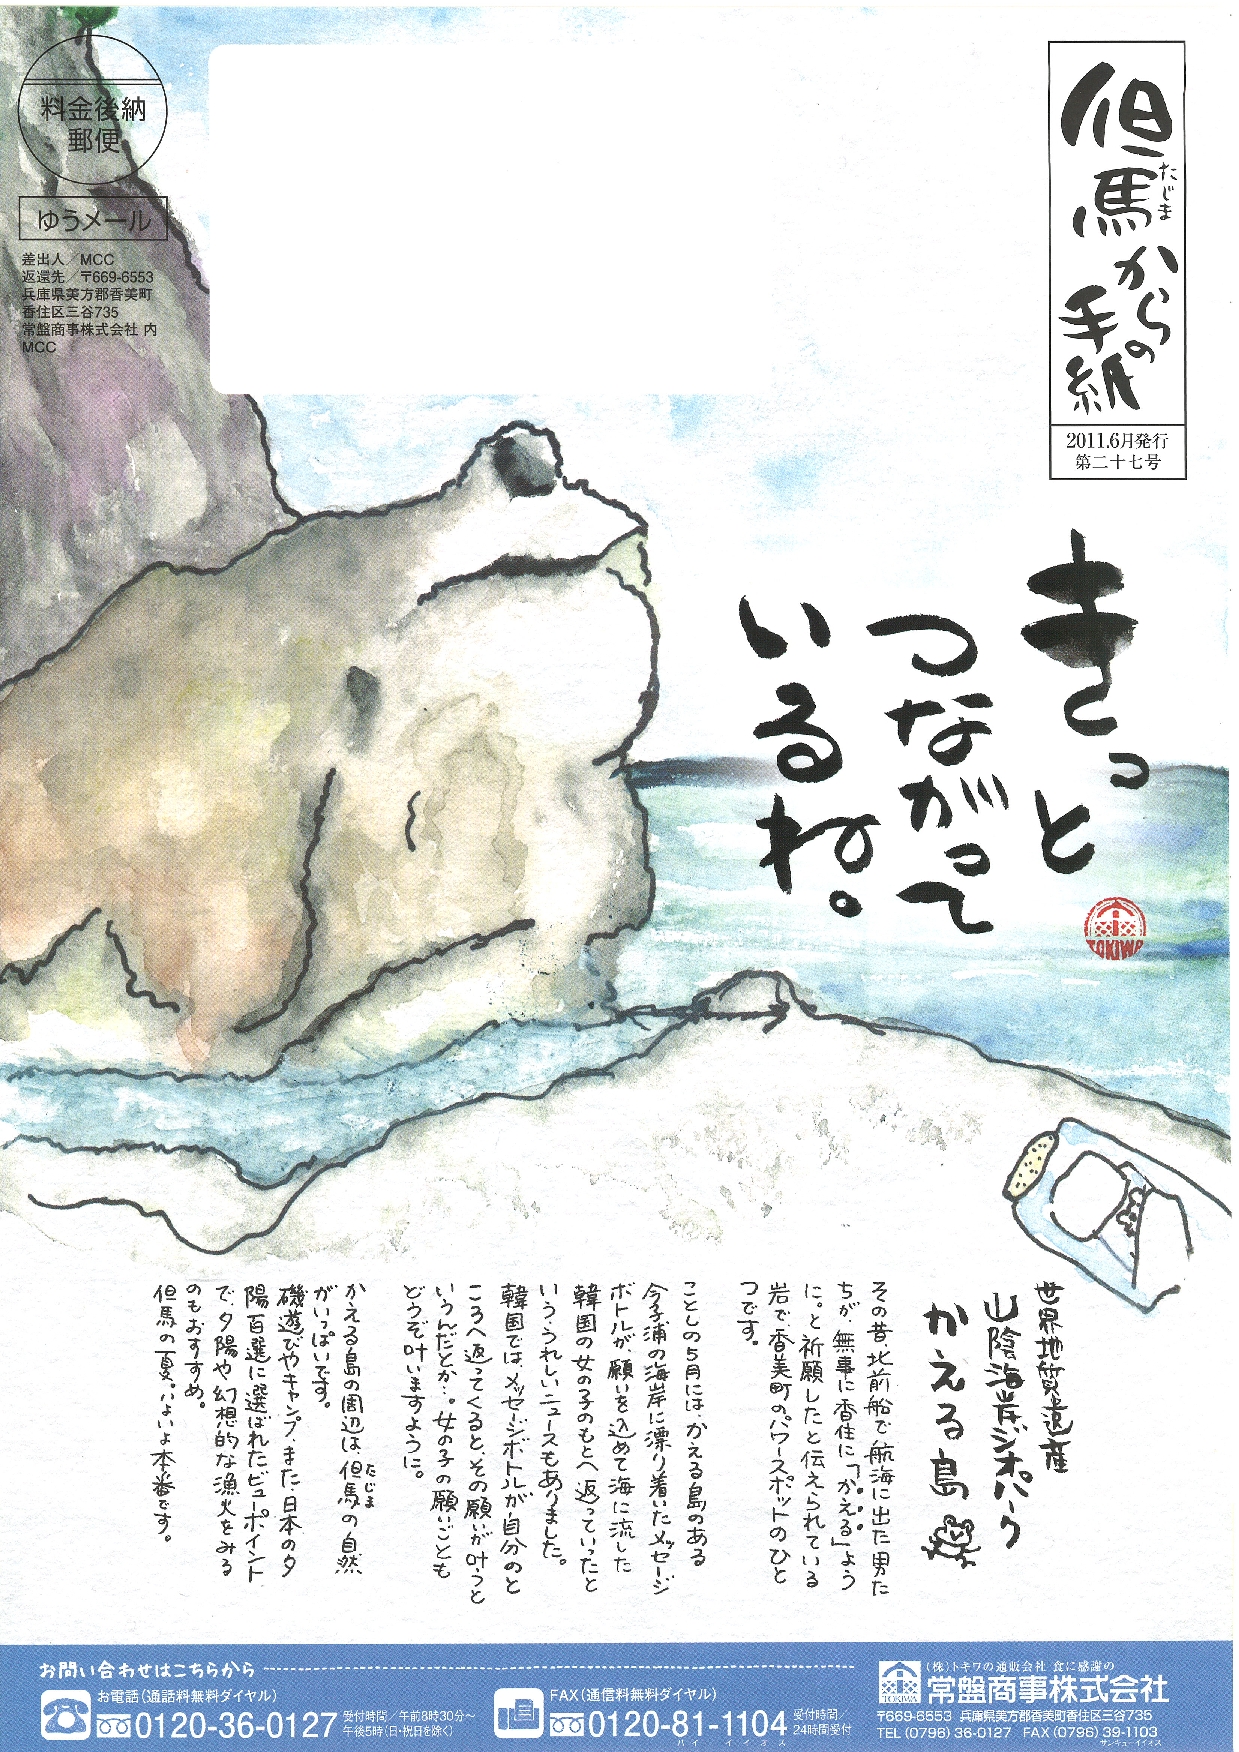 料金後納
郵便
ゆうメール
差出人／MCC
返還先／〒669-6553
兵庫県美方郡香美町
香住区三谷735
常盤商事株式会社 内
MCC
但馬からの
たじま
手紙
2011.6月発行
第二十七号
きっと
つながって
いるね。
TOKIWA
世界地質遺産
山陰海岸ジオパーク
かえる島
その昔、北前船で航海に出た男た
ちが、無事に香住に「かえる」よう
に。と祈願したと伝えられている
岩で、香美町のパワースポットのひと
つです。
ことしの5月には、かえる島のある
今子浦の海岸に漂り着いたメッセージ
ボトルが、願いを込めて海に流した
韓国の女の子のもとへ返っていったと
いう、うれしいニュースもありました。
韓国では、メッセージボトルが自分のと
ころへ返ってくると、その願いが叶うと
いうんだとか…。女の子の願いごとも
どうぞ叶いますように。
かえる島の周辺は、但馬の自然
たじま
がいっぱいです。
磯遊びやキャンプ、また、日本の夕
陽百選に選ばれたビューポイント
で、夕陽や幻想的な漁火をみる
のもおすすめ。
但馬の夏。いよいよ本番です。
お問い合わせはこちらから
お電話（通話料無料ダイヤル）
0120-36-0127
受付時間／午前8時30分〜
午後5時（日・祝日を除く）
FAX（通信料無料ダイヤル）
0120-81-1104
バイ イイオス
受付時間／
24時間受付
TOKIWA
（株）トキワの通販会社 食に感謝の
常盤商事株式会社
〒669-6553 兵庫県美方郡香美町香住区三谷735
TEL（0796）36-0127 FAX（0796）39-1103
サンキューイイオス